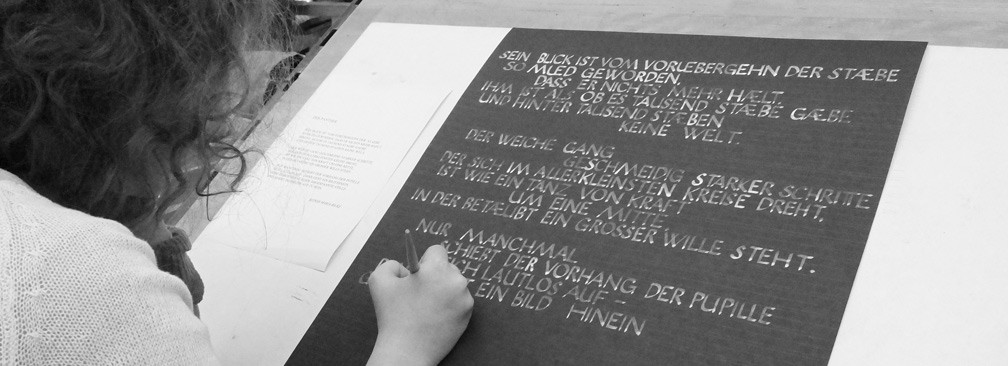 SEIN BLICK IST VOM VORUEBERGEHN DER STÆBE
SO MUED GEWORDEN,
DASS ER NICHTS MEHR HÆLT.
IHM IST ALS OB ES TAUSEND STÆBE GÆBE
UND HINTER TAUSEND STÆBEN
KEINE WELT.
DER WEICHE GANG
GESCHMEIDIG STARKER SCHRITTE
DER SICH IM ALLERKLEINSTEN KREISE DREHT,
IST WIE EIN TANZ VON KRAFT
UM EINE MITTE
IN DER BETÆUBT EIN GROSSER WILLE STEHT.
NUR MANCHMAL
SCHIEBT DER VORHANG DER PUPILLE
SICH LAUTLOS AUF –
EIN BILD HINEIN